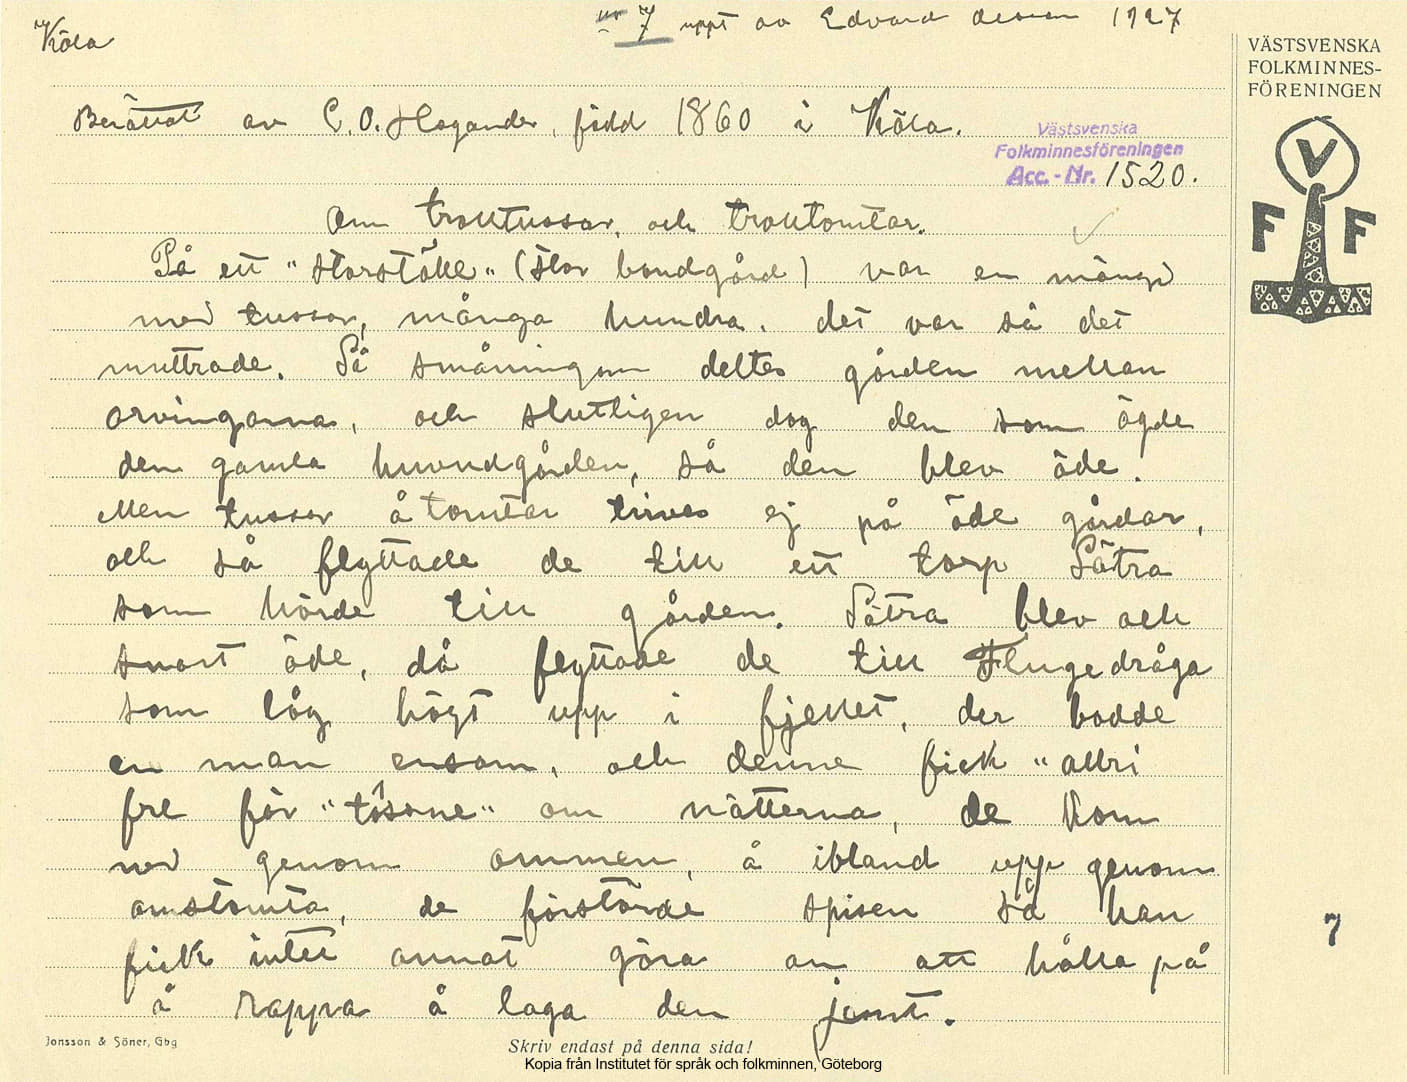 Köla
nr 7 uppt av Edvard Olsson 1927
VÄSTSVENSKA
FOLKMINNES-
FÖRENINGEN
Berättat av C.O. Hagander, född 1860 i Köla.
Västsvenska
Folkminnesföreningen
Acc.-Nr. 1520.
V
F F
Om trolltussar, och trolltomtar.
På ett "storställe" (stor bondgård) var en mängd
med tussar, många hundra. det var så det
muttrade. Så småningom deltes gården mellan
arvingarna, och slutligen dog den som ägde
den gamla huvudgården, så den blev öde.
Men tussar å tomtar trives ej på öde gårdar,
och så flyttade de till ett torp Sätra
som hörde till gården. Sätra blev och
snart öde, då flyttade de till Flugedråga
som låg högt upp i fjellet, der bodde
en man ensom, och denne fick "allri
fre för "tösane" om nätterna, de kom
ned genom ommen, å ibland upp genom
omstomta, de förstörde spisen så han
fick intet annat göra än att hålla på
å rappa å laga den jemt.
7
Jonsson & Söner, Gbg
Skriv endast på denna sida!
Kopia från Institutet för språk och folkminnen, Göteborg